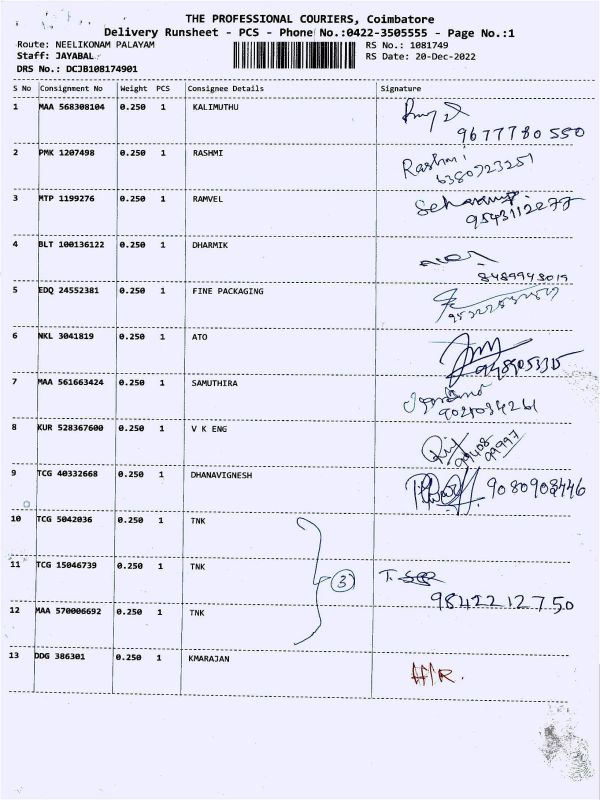 THE PROFESSIONAL COURIERS, Coimbatore
Delivery Runsheet - PCS - Phone No.:0422-3505555 - Page No.:1
Route: NEELIKONAM PALAYAM
RS No.: 1081749
Staff: JAYABAL
RS Date: 20-Dec-2022
DRS No.: DCJB108174901
S No Consignment No Weight PCS Consignee Details Signature
1 MAA 568308104 0.250 1 KALIMUTHU
9677780550
2 PMK 1207498 0.250 1 RASHMI Rashmi
6380723251
3 MTP 1199276 0.250 1 RAMVEL
9543112277
4 BLT 100136122 0.250 1 DHARMIK
8489943019
5 EDQ 24552381 0.250 1 FINE PACKAGING
6 NKL 3041819 0.250 1 ATO
7 MAA 561663424 0.250 1 SAMUTHIRA
8 KUR 528367600 0.250 1 V K ENG
99408
99997
9 TCG 40332668 0.250 1 DHANAVIGNESH 9080908446
10 TCG 5042036 0.250 1 TNK
11 TCG 15046739 0.250 1 TNK 3
9842212750
12 MAA 570006692 0.250 1 TNK
13 DDG 386301 0.250 1 KMARAJAN H/R.